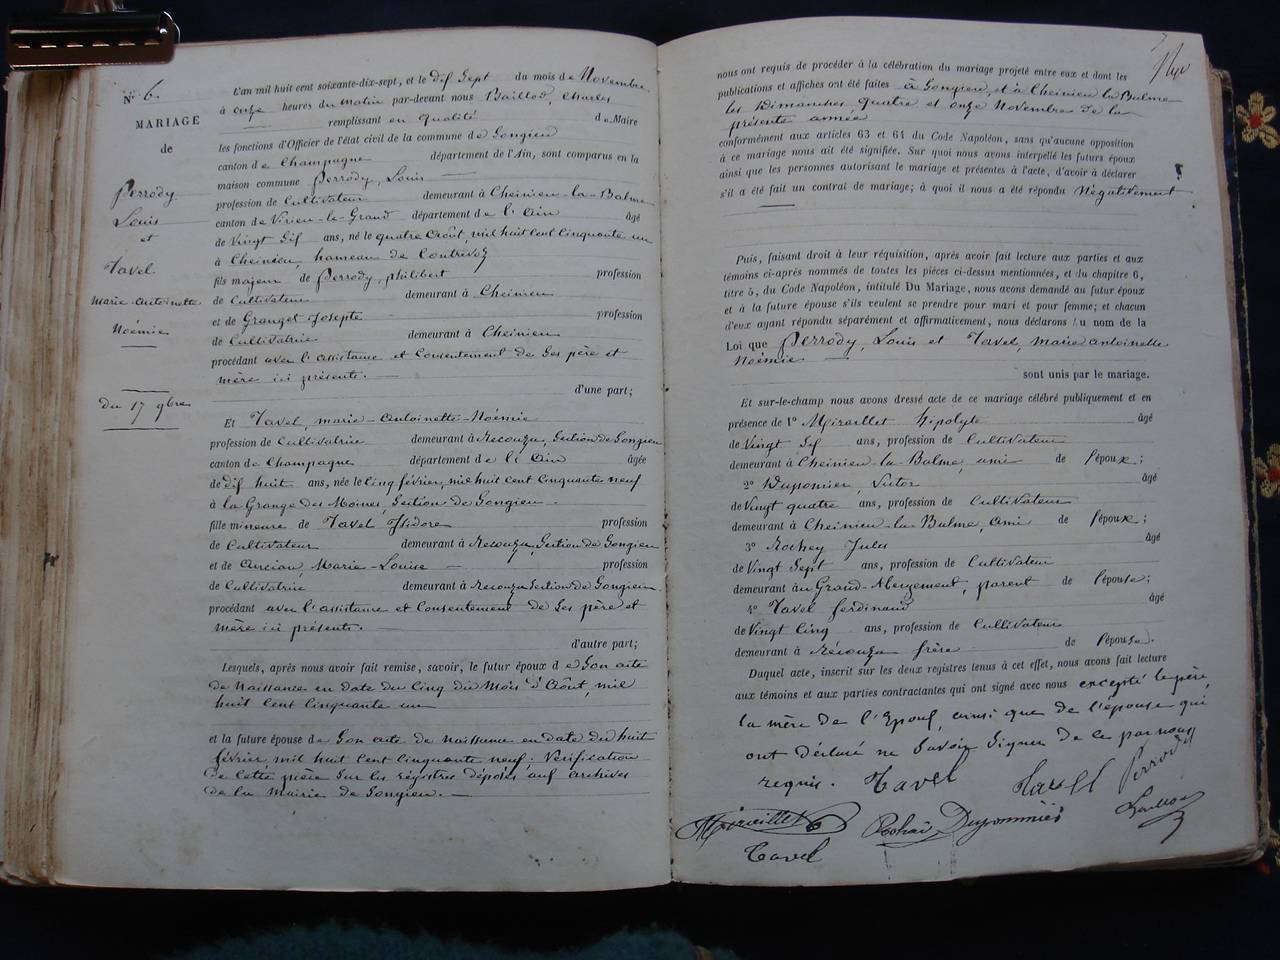 N° 6.
MARIAGE
de
Perrody
Louis
et
Tavel
marie-antoinette
Noémie
du 17 9bre
L'an mil huit cent soixante-dix-sept, et le dix Sept du mois de Novembre
à onze heures du matin par-devant nous Baillod, Charles
remplissant en qualité de Maire
les fonctions d'Officier de l'état civil de la commune de Songieu
canton de Champagne département de l'Ain, sont comparus en la
maison commune Perrody, Louis
profession de Cultivateur demeurant à Cheinieu-la-Balme
canton de Virieu-le-Grand département de l'Ain âgé
de Vingt Six ans, né le quatre Août, mil huit cent cinquante un
à Cheinieu, hameau de Contrevoz
fils majeur de Perrody, philibert profession
de Cultivateur demeurant à Cheinieu
et de Granget Josepte profession
de Cultivatrice demeurant à Cheinieu
procédant avec l'assistance et Consentement de Ses père et
mère ici présents.
d'une part;
Et Tavel, marie-Antoinette-Noémie
profession de Cultivatrice demeurant à Recouza, Section de Songieu
canton de Champagne département de l'Ain âgée
de dix huit ans, née le cinq février, mil huit cent cinquante neuf
à la Grange des Moines, Section de Songieu.
fille mineure de Tavel Isidore profession
de Cultivateur demeurant à Recouza, Section de Songieu
et de Ancian, Marie-Louise profession
de Cultivatrice demeurant à Recouza Section de Songieu
procédant avec l'assistance et Consentement de Ses père et
mère ici présents.
d'autre part;
Lesquels, après nous avoir fait remise, savoir, le futur époux de Son acte
de Naissance en date du Cinq du Mois d'Août mil
huit cent cinquante un
et la future épouse de Son acte de Naissance en date du huit
février, mil huit cent cinquante neuf. Vérification
de cette pièce Sur les régistres déposés aux archives
de la Mairie de Songieu.
nous ont requis de procéder à la célébration du mariage projeté entre eux et dont les
publications et affiches ont été faites à Songieu, et à Cheinieu la Balme
les Dimanches quatre et onze Novembre de la
présente année
conformément aux articles 63 et 64 du Code Napoléon, sans qu'aucune opposition
à ce mariage nous ait été signifiée. Sur quoi nous avons interpellé les futurs époux
ainsi que les personnes autorisant le mariage et présentes à l'acte, d'avoir à déclarer
s'il a été fait un contrat de mariage; à quoi il nous a été répondu Négativement
Puis, faisant droit à leur réquisition, après avoir fait lecture aux parties et aux
témoins ci-après nommés de toutes les pièces ci-dessus mentionnées, et du chapitre 6,
titre 5, du Code Napoléon, intitulé Du Mariage, nous avons demandé au futur époux
et à la future épouse s'ils veulent se prendre pour mari et pour femme; et chacun
d'eux ayant répondu séparément et affirmativement, nous déclarons au nom de la
Loi que Perrody, Louis et Tavel, marie antoinette
Noémie
sont unis par le mariage.
Et sur-le-champ nous avons dressé acte de ce mariage célébré publiquement et en
présence de 1° Miraillet hipolyte âgé
de Vingt Six ans, profession de Cultivateur
demeurant à Cheinieu-la-Balme, ami de l'époux;
2° Duponnier, Victor âgé
de Vingt quatre ans, profession de Cultivateur
demeurant à Cheinieu-la-Balme, ami de l'époux;
3° Rochey Jules âgé
de Vingt Sept ans, profession de Cultivateur
demeurant au Grand-Abergement, parent de l'épouse;
4° Tavel ferdinand âgé
de Vingt Cinq ans, profession de Cultivateur
demeurant à Récouza frère de l'épouse.
Duquel acte, inscrit sur les deux registres tenus à cet effet, nous avons fait lecture
aux témoins et aux parties contractantes qui ont signé avec nous excepté le père,
la mère de l'Epoux, ainsi que de l'épouse qui
ont déclaré ne Savoir Signer de ce par nous
requis. Tavel Tavel Perrody
Miraillet Duponnier Baillod
Tavel